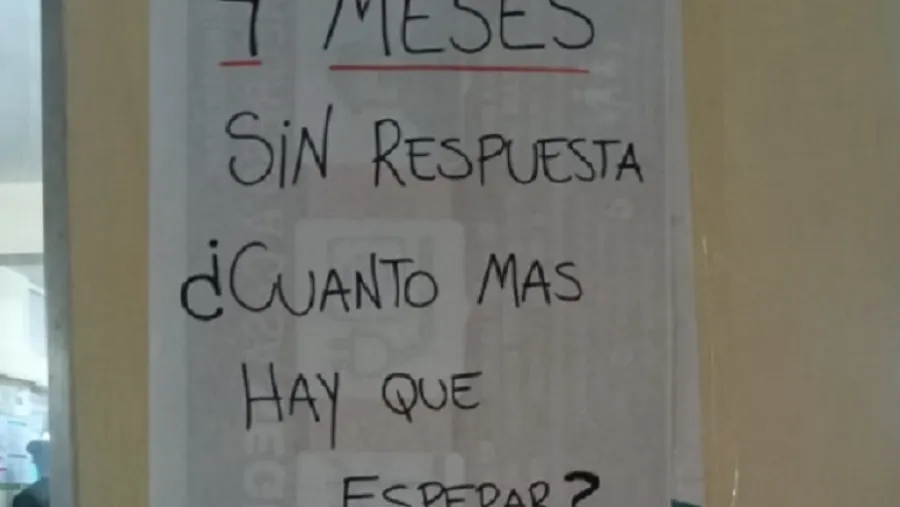 MESES
SiN RESPUESTA
¿CUANTO MAS
HAY QUE
ESPERAR?